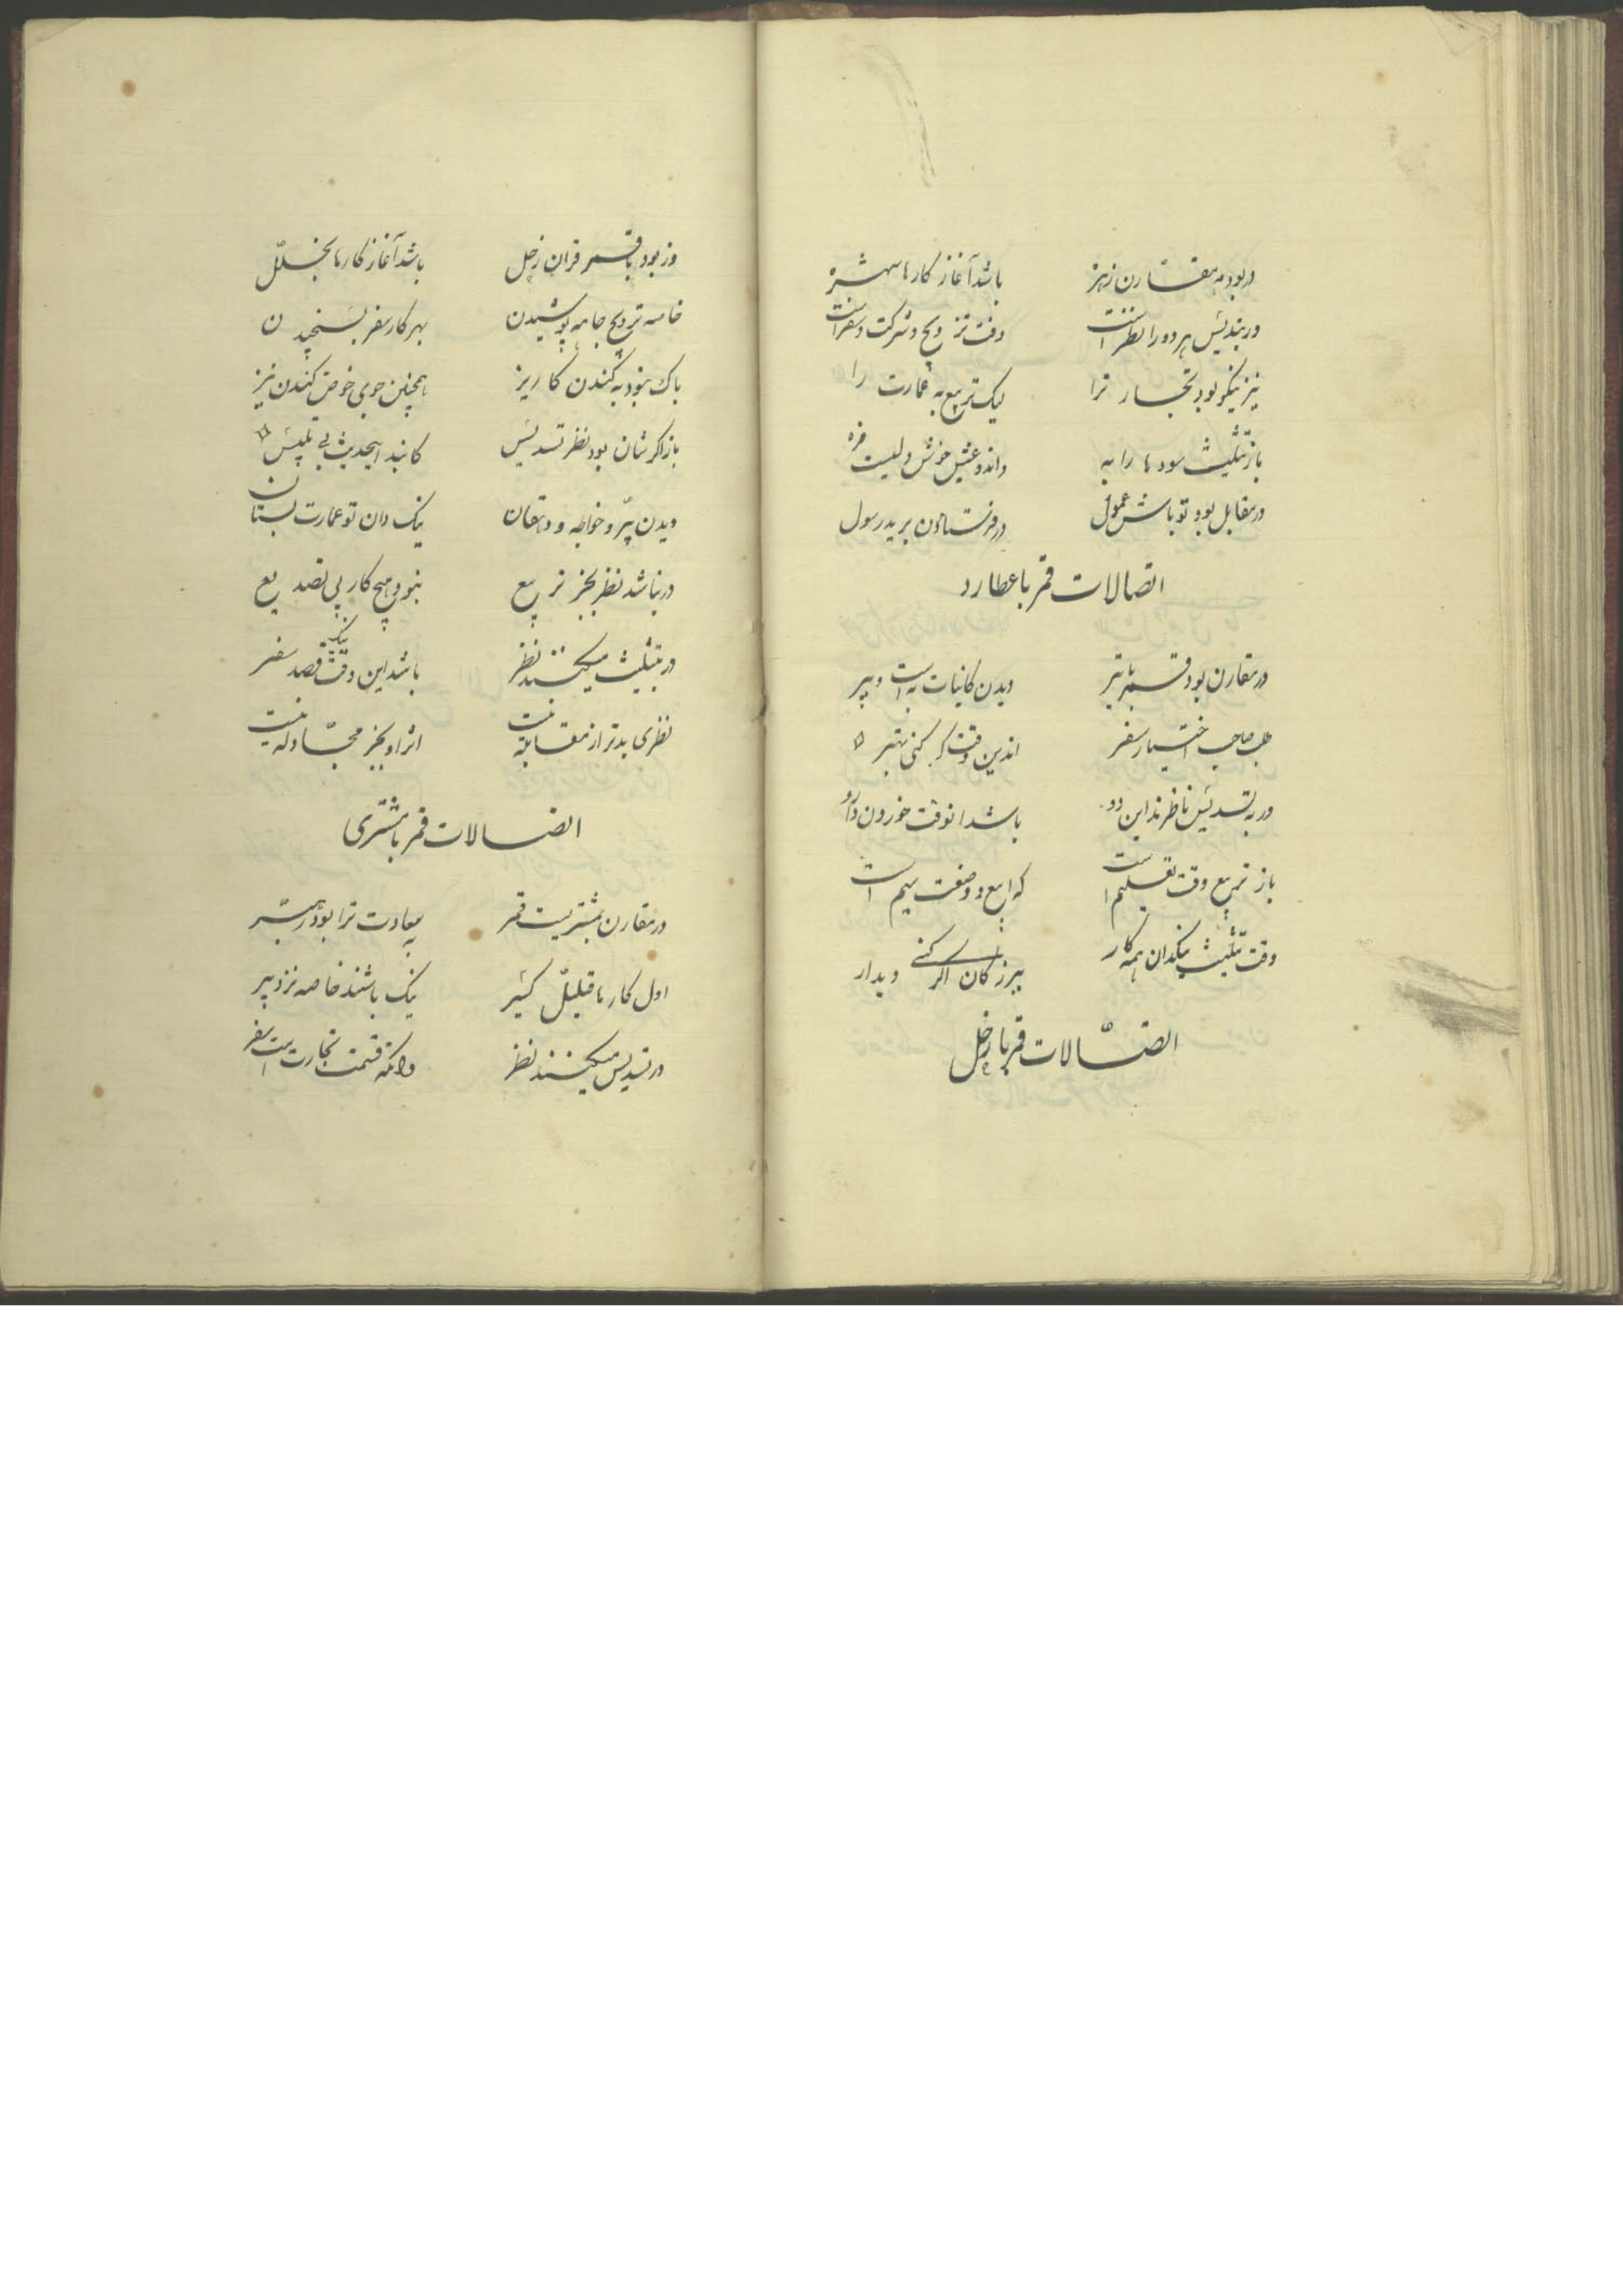 در بود مه مقارن زهره باشد آغاز کارها شهره
ور بتدیس هر دو را نظر است وقت تزویج و شرکت و سفر است
نیز نیکو بود تجار ترا لیک تربیع به عمارت را
باز تثلیث سودها را به
در مقابل بود تو باش عمول در فرستادن برید رسول
اتصالات قمر با عطارد
در مقارن بود قمر با تیر دیدن کاینات به است و پیر
اختیار سفر اندرین وقت کر کنی بهتر
ور به تسدیس ناظرند این دو باشد انوقت خوردن دارو
باز تربیع وقت تعلیم است که بیع و سیم است
وقت تثلیث نیکدان همه کار ببزرکان اکر کنی دیدار
اتصالات قمر با زحل
ور بود با قمر قران زحل باشد آغاز کارها بخلل
خاصه تزویج جامه پوشیدن بهر کار سفر بسنجیدن
باک نبود به کندن کاریز همچنین جوی حوض کندن نیز
باز اکر شان بود نظر تسدیس بی تلبیس
دیدن پیر و خواجه و دهقان نیک دان تو عمارت بستان
در نباشد نظر بجز تربیع نبود هیچ کار بی تصدیع
در بتثلیث میکنند نظر باشد این وقت نیک قصد سفر
نظری بدتر از مقابله نیست اثر او بجز مجادله نیست
اتصالات قمر با مشتری
در مقارن بمشتریست قمر بسعادت ترا بود رهبر
اول کارها قلیل کثیر نیک باشند خاصه نزد پیر
در تسدیس میکنند نظر تجارت است سفر